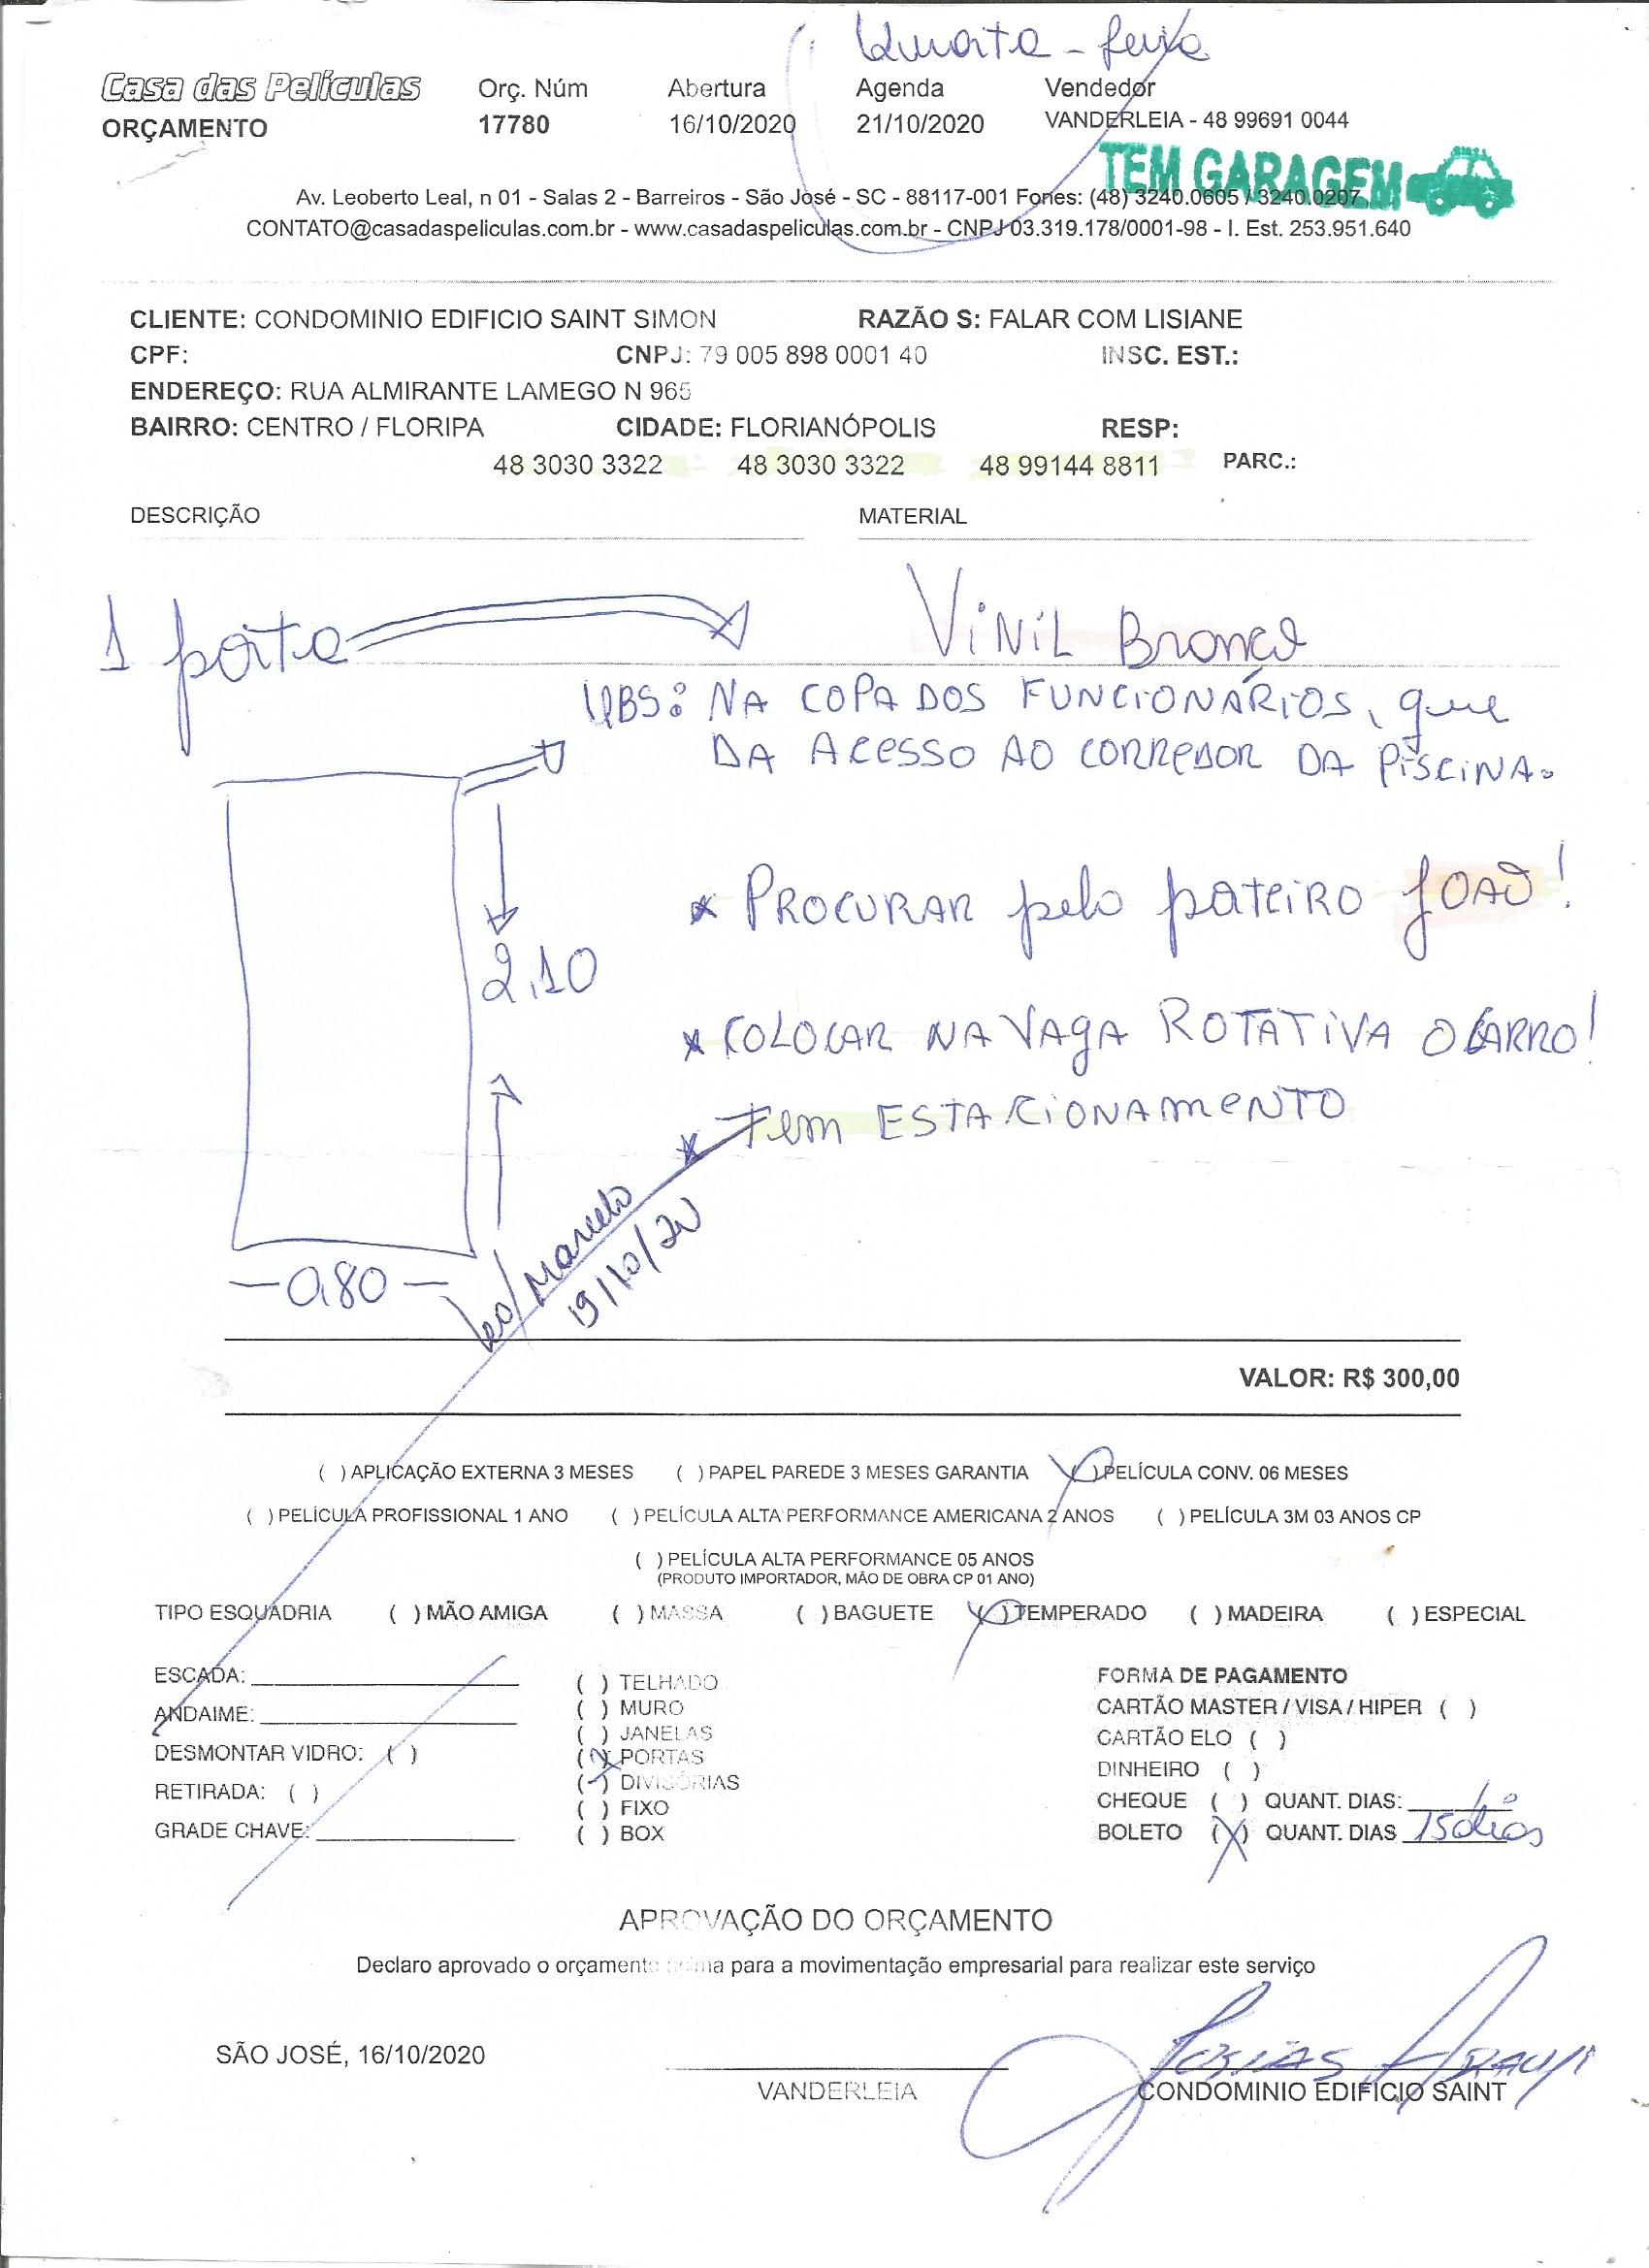 Quarta-feira
Casa das Películas Orç. Núm Abertura Agenda Vendedor
ORÇAMENTO 17780 16/10/2020 21/10/2020 VANDERLEIA - 48 99691 0044
TEM GARAGEM
Av. Leoberto Leal, n 01 - Salas 2 - Barreiros - São José - SC - 88117-001 Fones: (48) 3240.0605 / 3240.0207
CONTATO@casadaspeliculas.com.br - www.casadaspeliculas.com.br - CNPJ 03.319.178/0001-98 - I. Est. 253.951.640
CLIENTE: CONDOMINIO EDIFICIO SAINT SIMON RAZÃO S: FALAR COM LISIANE
CPF: CNPJ: 79 005 898 0001 40 INSC. EST.:
ENDEREÇO: RUA ALMIRANTE LAMEGO N 965
BAIRRO: CENTRO / FLORIPA CIDADE: FLORIANÓPOLIS RESP:
48 3030 3322 48 3030 3322 48 99144 8811 PARC.:
DESCRIÇÃO MATERIAL
1 porta ViNiL Branco
OBS: NA COPA DOS FUNCIONÁRIOS, que
DA ACESSO AO CORREDOR DA PiSCiNA.
* PROCURAR pelo porteiro JOAO!
2,10
* COLOCAR NA VAGA ROTATIVA O CARRO!
* Tem ESTACIONAMENTO
0,80
Leo/Marcelo
19/10/20
VALOR: R$ 300,00
( ) APLICAÇÃO EXTERNA 3 MESES ( ) PAPEL PAREDE 3 MESES GARANTIA (X) PELÍCULA CONV. 06 MESES
( ) PELÍCULA PROFISSIONAL 1 ANO ( ) PELÍCULA ALTA PERFORMANCE AMERICANA 2 ANOS ( ) PELÍCULA 3M 03 ANOS CP
( ) PELÍCULA ALTA PERFORMANCE 05 ANOS
(PRODUTO IMPORTADOR, MÃO DE OBRA CP 01 ANO)
TIPO ESQUADRIA ( ) MÃO AMIGA ( ) MASSA ( ) BAGUETE (X) TEMPERADO ( ) MADEIRA ( ) ESPECIAL
ESCADA: ( ) TELHADO FORMA DE PAGAMENTO
ANDAIME: ( ) MURO CARTÃO MASTER / VISA / HIPER ( )
( ) JANELAS CARTÃO ELO ( )
DESMONTAR VIDRO: ( ) (X) PORTAS DINHEIRO ( )
RETIRADA: ( ) ( ) DIVISÓRIAS CHEQUE ( ) QUANT. DIAS:
GRADE CHAVE: ( ) FIXO BOLETO (X) QUANT. DIAS 15 dias
( ) BOX
APROVAÇÃO DO ORÇAMENTO
Declaro aprovado o orçamento acima para a movimentação empresarial para realizar este serviço
SÃO JOSÉ, 16/10/2020
VANDERLEIA CONDOMINIO EDIFICIO SAINT